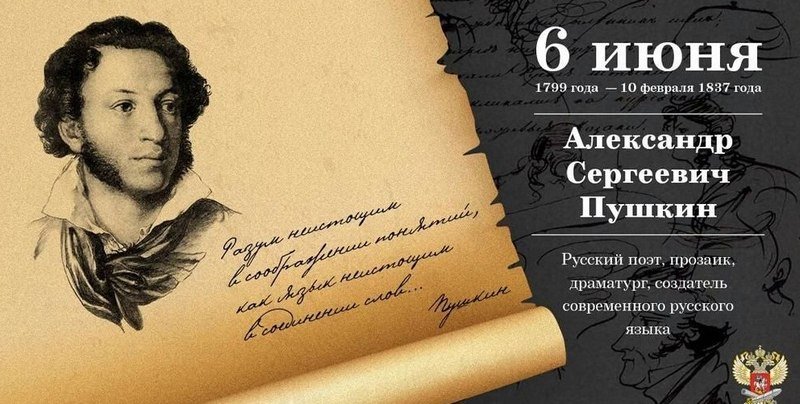 6 июня
1799 года — 10 февраля 1837 года
Александр
Сергеевич
Пушкин
Русский поэт, прозаик,
драматург, создатель
современного русского
языка
Разум неистощим
в соображении понятий,
как язык неистощим
в соединении слов...
Пушкин